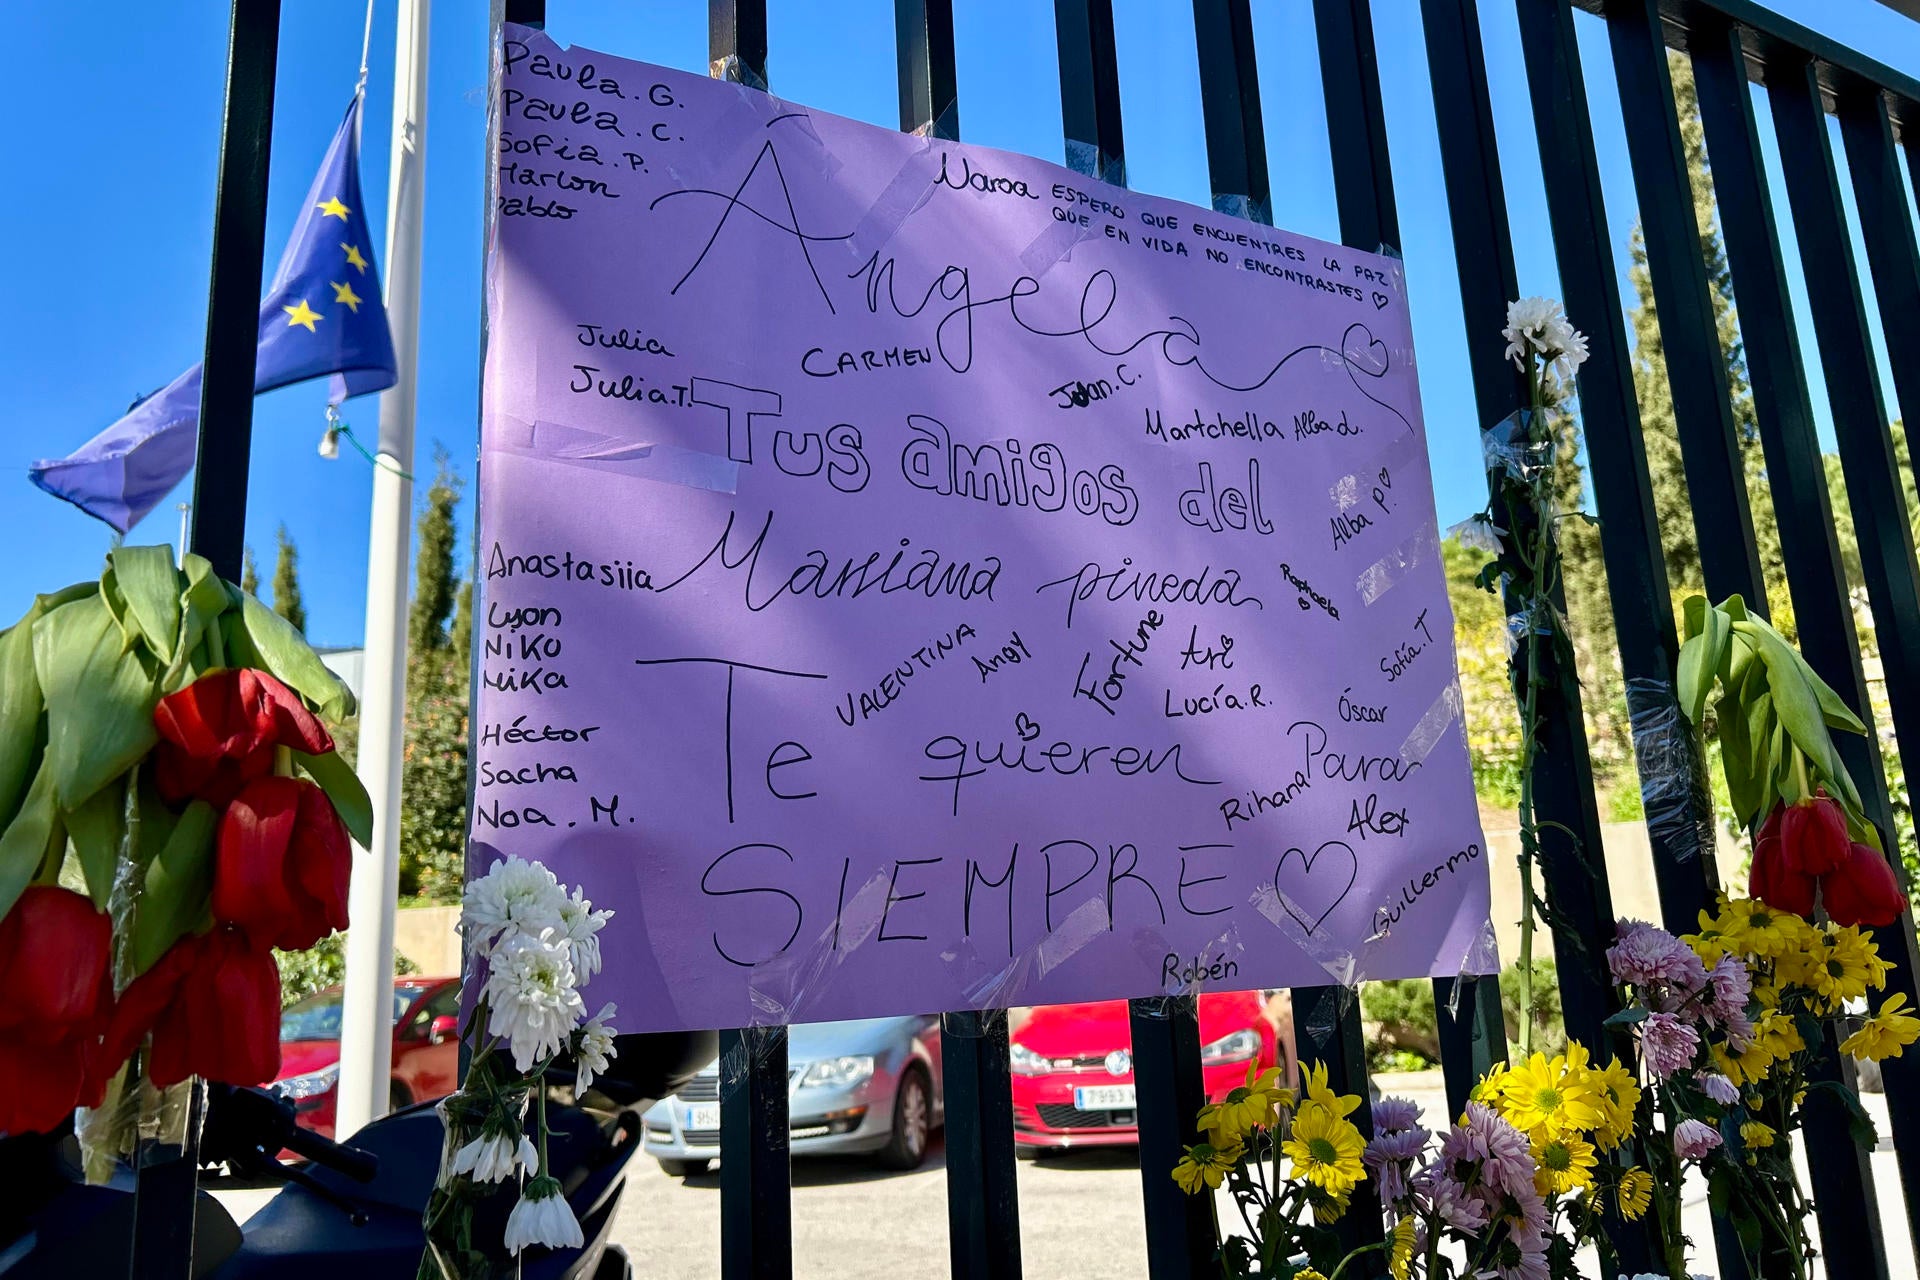 Paula.G.
Paula.C.
Sofia.P.
Marlon
Pablo
Naroa ESPERO QUE ENCUENTRES LA PAZ
QUE EN VIDA NO ENCONTRASTES ♡
Ángela
Julia
Julia.T.
CARMEN
Joan.C.
Martchella Alba d.
Tus amigos del
Alba P.♡
Mariana pineda
Raphaela
Anastasiia
Lyon
NiKO
MiKa
Héctor
Sacha
Noa.M.
VALENTINA
Angy
Fortune
Ari
Lucía.R.
Sofía.T
Óscar
Te quieren Para
Rihana
Alex
SIEMPRE ♡
Guillermo
Robén
7993